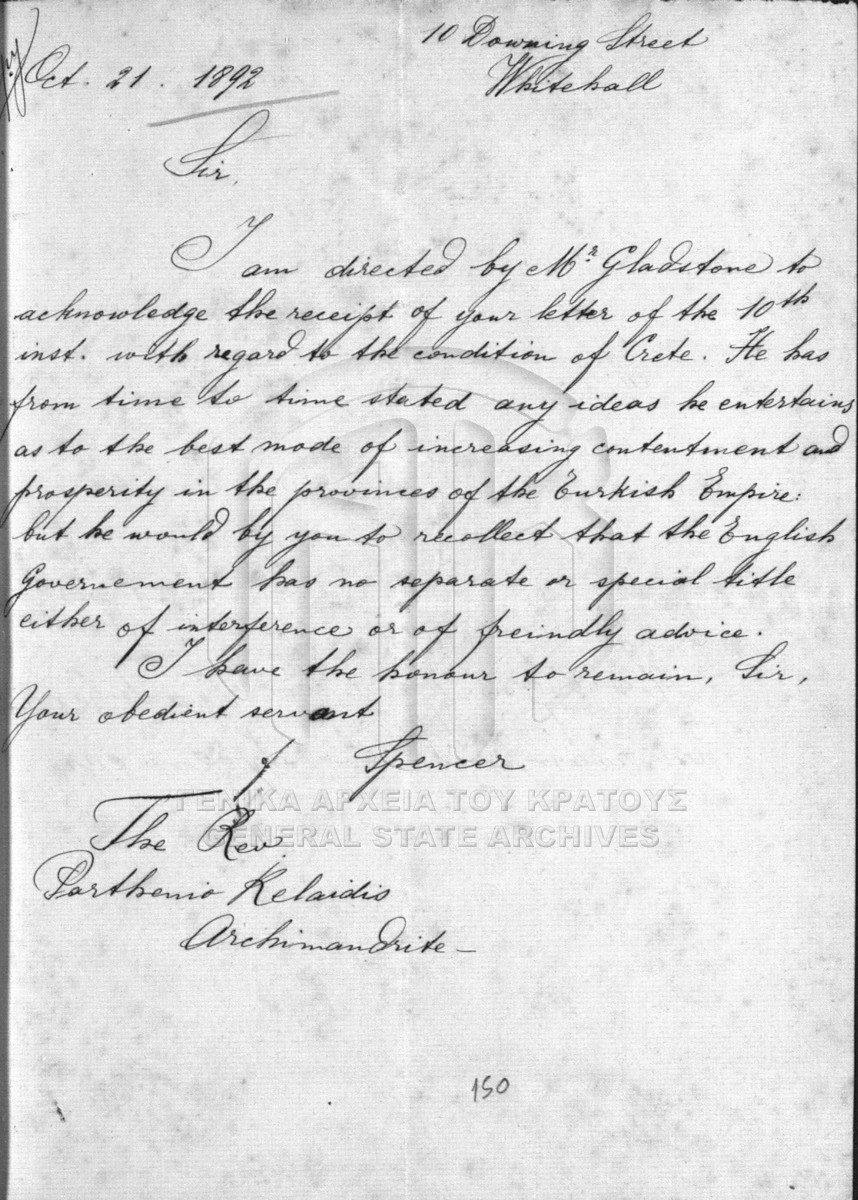 10 Downing Street
Whitehall
Oct. 21. 1892
Sir,
I am directed by Mr Gladstone to
acknowledge the receipt of your letter of the 10th
inst. with regard to the condition of Crete. He has
from time to time stated any ideas he entertains
as to the best mode of increasing contentment and
prosperity in the provinces of the Turkish Empire:
but he would by you to recollect that the English
Governement has no separate or special title
either of interference or of freindly advice.
I have the honour to remain, Sir,
Your obedient servant
Spencer
ΓΕΝΙΚΑ ΑΡΧΕΙΑ ΤΟΥ ΚΡΑΤΟΥΣ
GENERAL STATE ARCHIVES
The Rev.
Parthenio Kelaidis
Archimandrite –
150